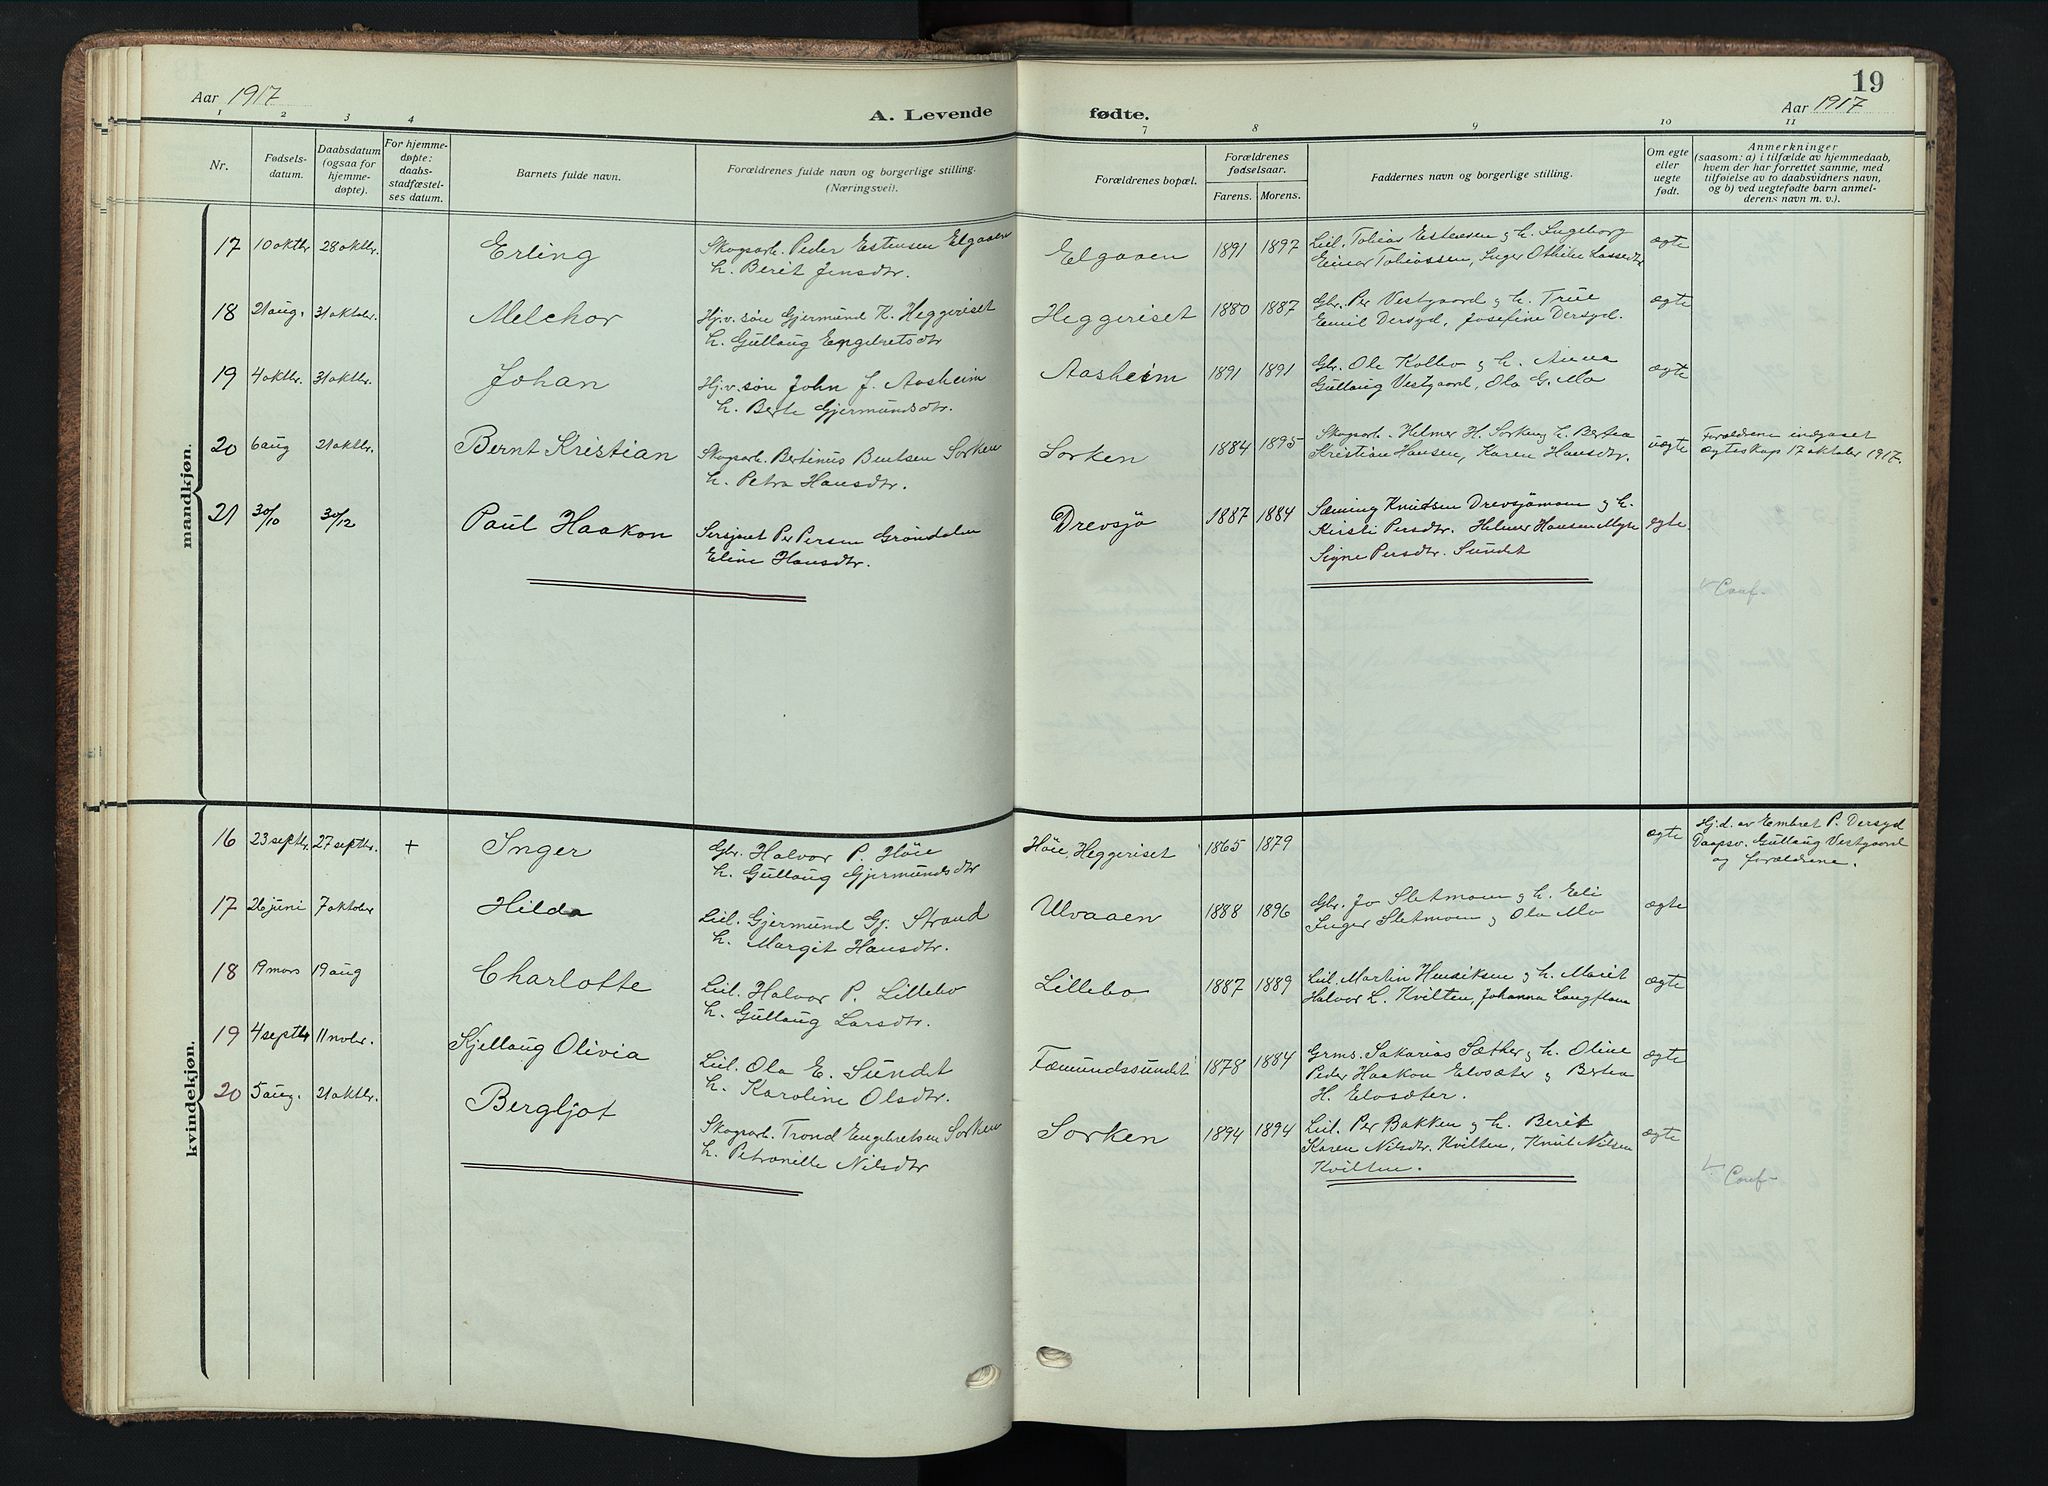 Aar 1917
A. Levende fødte.
19
Aar 1917
1 2 3 4 7 8 9 10 11
Nr.
Fødsels-
datum.
Daabsdatum
(ogsaa for
hjemme-
døpte).
For hjemme-
døpte:
daabs-
stadfæstel-
ses datum.
Barnets fulde navn.
Forældrenes fulde navn og borgerlige stilling.
(Næringsvei).
Forældrenes bopæl.
Forældrenes
fødselsaar.
Farens. Morens.
Faddernes navn og borgerlige stilling.
Om egte
eller
uegte
født.
Anmerkninger
(saasom: a) i tilfælde av hjemmedaab,
hvem der har forrettet samme, med
tilføielse av to daabsvidners navn,
og b) ved uegtefødte barn anmel-
derens navn m. v.).
mandkjøn.
17 10 oktbr. 28 oktbr. Erling
Skogsarb. Peder Estensen Elgaaen
h. Berit Jensdtr.
Elgaaen 1891 1897
Leil. Tobias Estensen g h. Ingeborg
Einar Tobiassen, Inger Othilie Lassedtr
ægte
18 21 aug. 31 oktober. Melchor
Hj.v. søn Gjermund K. Heggeriset
h. Gullaug Engebretsdtr
Heggeriset 1880 1887
Gbr. Per Vestgaard g h. True
Emil Dersyd, Josefine Dersyd.
ægte
19 4 oktbr. 31 oktbr. Johan
Hj.v. søn John J. Aasheim
h. Berte Gjermundsdtr.
Aasheim 1891 1891
Gbr. Ole Kolbo g h. Anna
Gullaug Vestgaard, Ola G. Mo
ægte
20 6 aug 21 oktbr. Bernt Kristian
Skogsarb. Bertinus Bentsen Sorken
h. Petra Hansdtr.
Sorken 1884 1895
Skogsarb. Helmer H. Sorken g h. Bertea
Kristian Hansen, Karen Hansdtr.
uægte
Forældrene indgaaet
ægteskap 17 oktober 1917.
21 30/10 30/12 Paul Haakon
Sersjant Per Persen Grøndalen
Eline Hansdtr.
Drevsjø 1887 1884
Sæming Knudsen Drevsjømoen g h.
Kirsti Persdtr. Helmer Hansen Myre
Signe Persdtr. Sundet
egte
Conf.
kvindekjøn.
16 23 septbr. 27 septbr. + Inger
Gbr. Halvor P. Høie
h. Gullaug Gjermundsdtr
Høie, Heggeriset 1865 1879
ægte
Hj.d. av Embret P. Dersyd
Daapsv. Gullaug Vestgaard
og forældrene.
17 26 juni 7 oktober Hilda
Leil. Gjermund Gj. Strand
h. Margit Hansdtr.
Ulvaaen 1888 1896
Gbr. Jo Sletmoen g h. Eli
Inger Sletmoen g Ola Mo
ægte
18 19 mars 19 aug Charlotte
Leil. Halvor P. Lillebo
h. Gullaug Larsdtr.
Lillebo 1887 1889
Leil. Martin Henriksen g h. Marit
Halvor L. Kvilten, Johanna Langfloen
ægte
19 4 septbr 11 novbr. Kjellaug Olivia
Leil. Ola E. Sundet
h. Karoline Olsdtr.
Fæmundssundet 1878 1884
Grms. Sakarias Sæther g h. Oline
Peder Haakon Elvsæter g Bertea
H. Elvsæter.
ægte
20 5 aug. 21 oktbr. Bergljot
Skogsarb. Trond Engebretsen Sorken
h. Petronille Nilsdtr
Sorken 1894 1894
Leil. Per Bakken g h. Berit
Karen Nilsdtr. Kvilten, Knut Nilsen
Kvilten.
ægte
Conf.